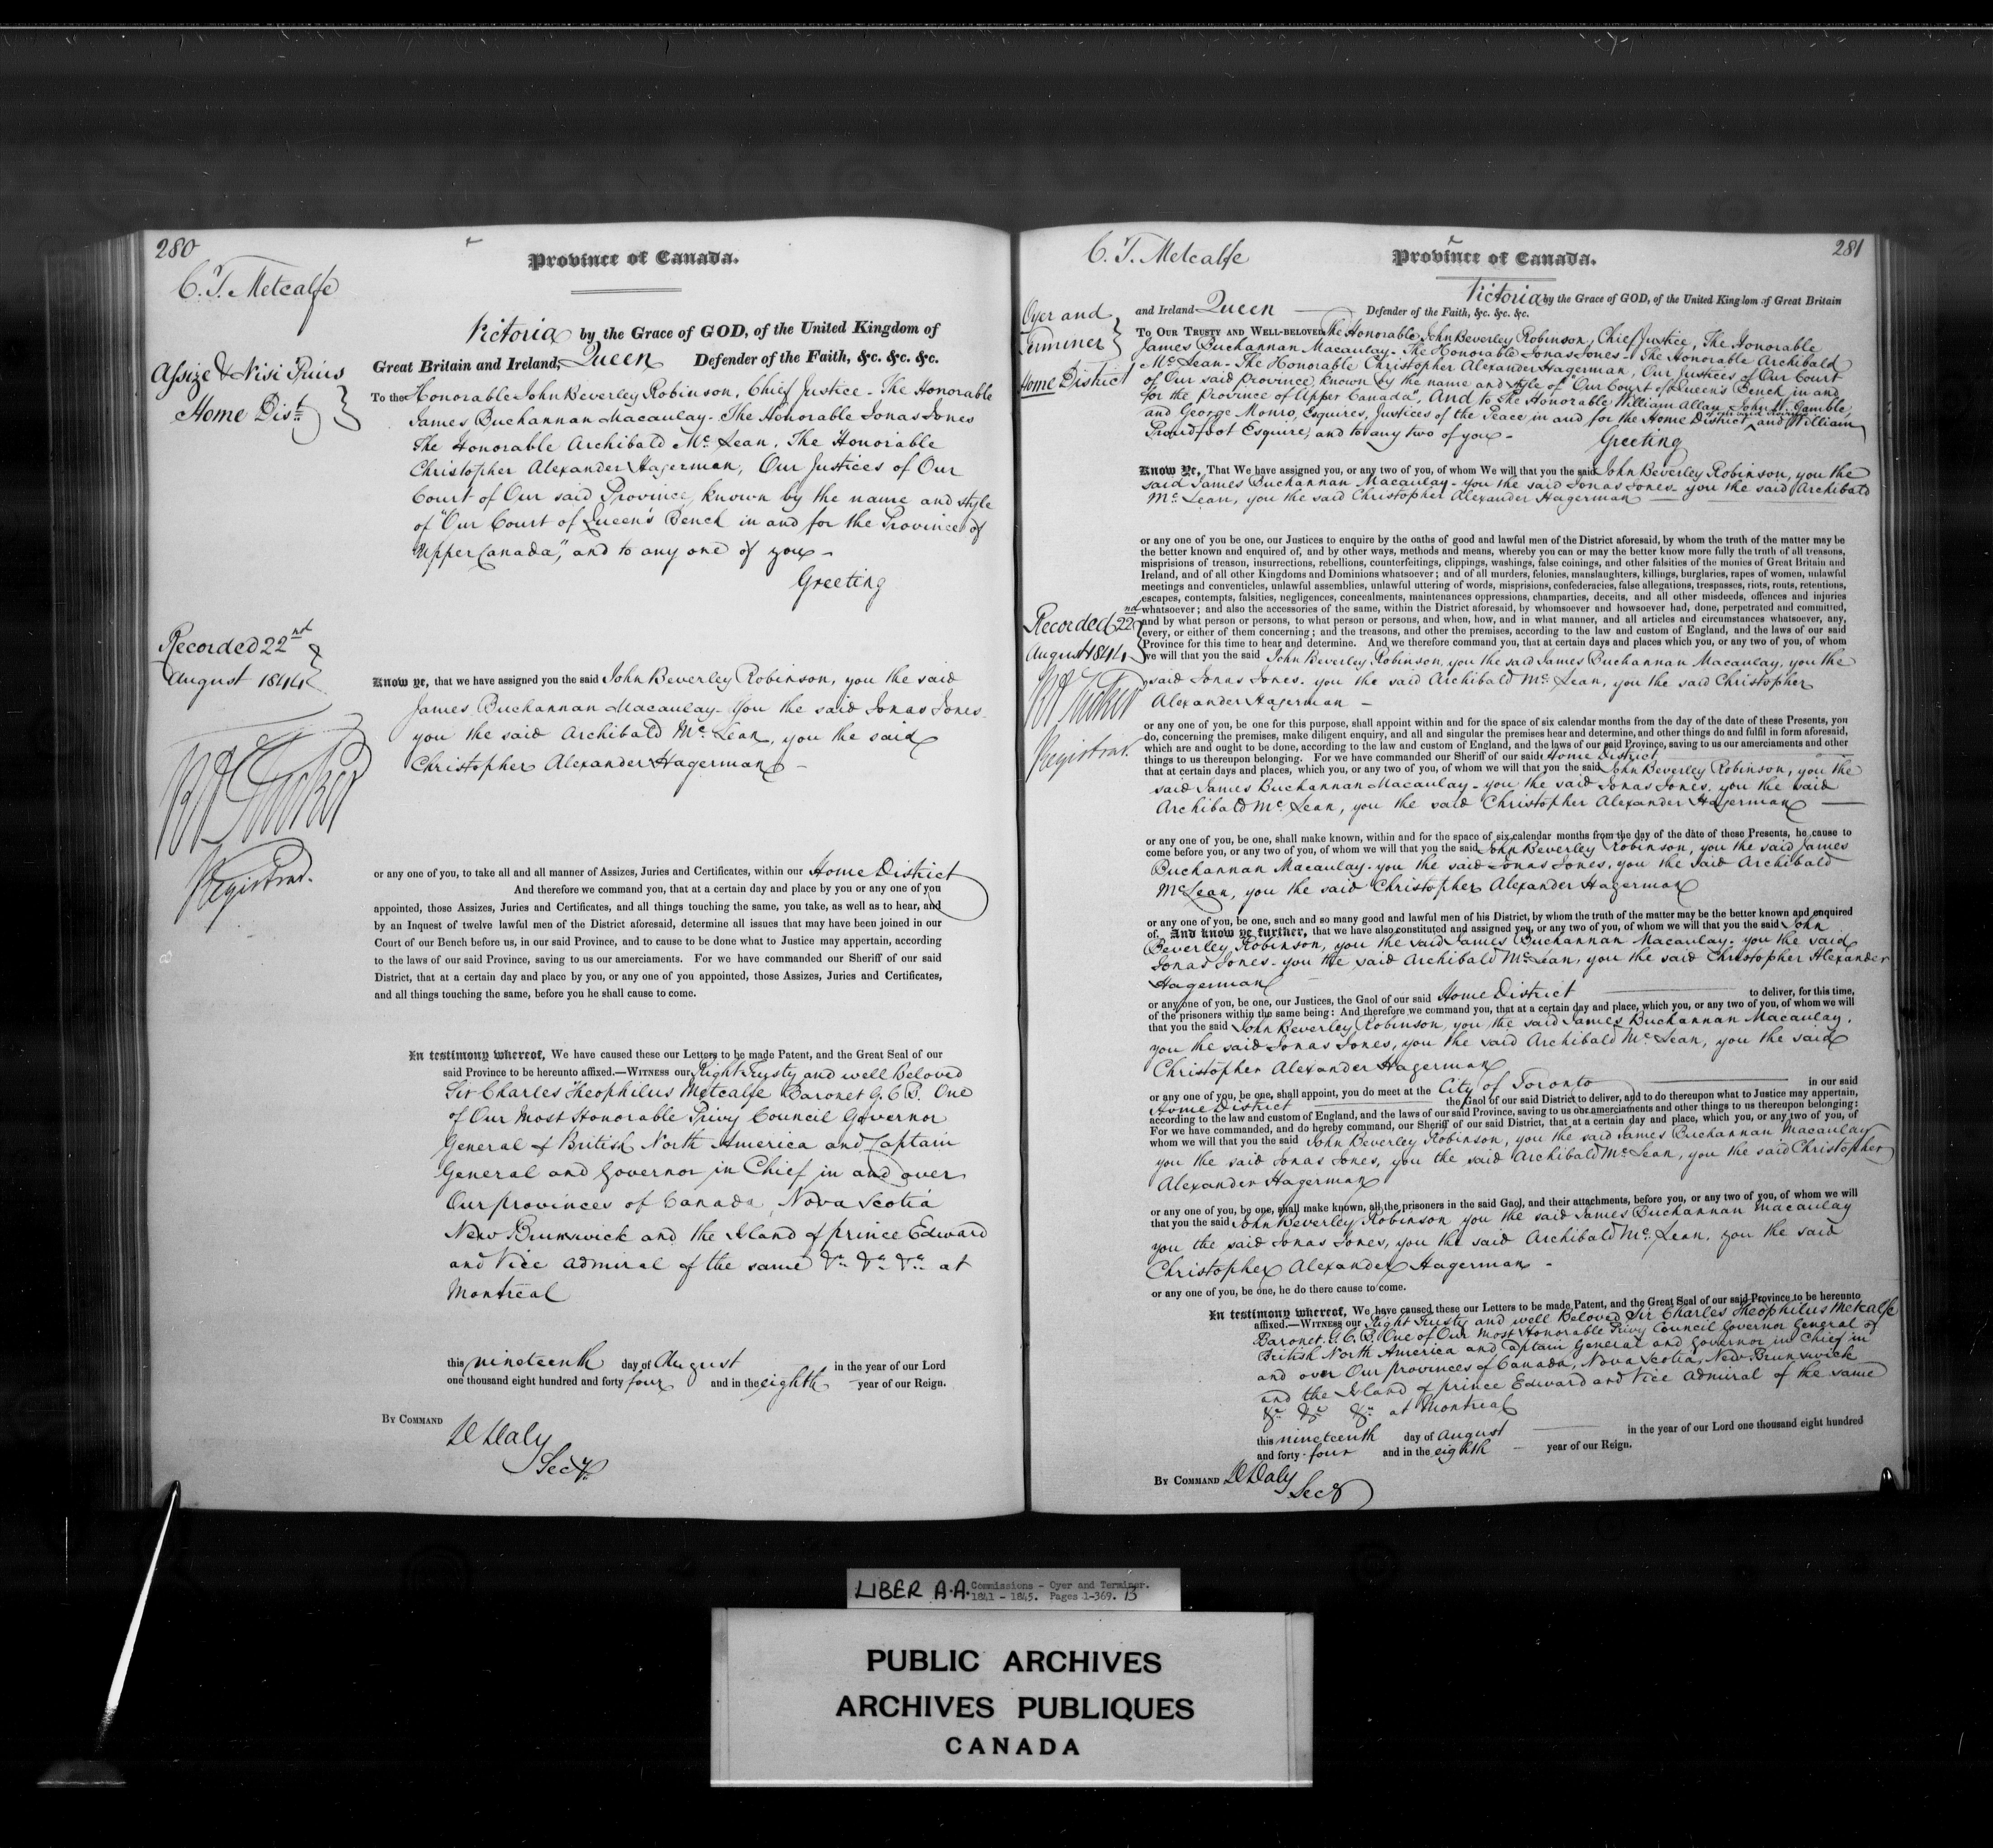 280
C. T. Metcalfe
Province of Canada.
Assize & Nisi Prius
Home Dist.
Victoria by the Grace of GOD, of the United Kingdom of
Great Britain and Ireland, Queen Defender of the Faith, &c. &c. &c.
To the Honorable John Beverley Robinson, Chief Justice - The Honorable
James Buchannan Macaulay - The Honorable Jonas Jones
The Honorable Archibald Mc. Lean, The Honorable
Christopher Alexander Hagerman, Our Justices of Our
Court of Our said Province, known by the name and style
of "Our Court of Queen's Bench in and for the Province of
Upper Canada", and to any one of you -
Greeting
Recorded 22nd
August 1844
Registrar.
Know ye, that we have assigned you the said John Beverley Robinson, you the said
James Buchannan Macaulay - you the said Jonas Jones
you the said Archibald Mc. Lean, you the said
Christopher Alexander Hagerman -
or any one of you, to take all and all manner of Assizes, Juries and Certificates, within our Home District
And therefore we command you, that at a certain day and place by you or any one of you
appointed, those Assizes, Juries and Certificates, and all things touching the same, you take, as well as to hear, and
by an Inquest of twelve lawful men of the District aforesaid, determine all issues that may have been joined in our
Court of our Bench before us, in our said Province, and to cause to be done what to Justice may appertain, according
to the laws of our said Province, saving to us our amerciaments. For we have commanded our Sheriff of our said
District, that at a certain day and place by you, or any one of you appointed, those Assizes, Juries and Certificates,
and all things touching the same, before you he shall cause to come.
In testimony whereof, We have caused these our Letters to be made Patent, and the Great Seal of our
said Province to be hereunto affixed.—WITNESS our Right Trusty and well beloved
Sir Charles Theophilus Metcalfe Baronet G.C.B. One
of Our Most Honorable Privy Council Governor
General of British North America and Captain
General and Governor in Chief in and over
Our provinces of Canada, Nova Scotia
New Brunswick and the Island of prince Edward
and Vice Admiral of the same &c &c &c at
Montreal
this nineteenth day of August in the year of our Lord
one thousand eight hundred and forty four and in the eighth year of our Reign.
BY COMMAND
D Daly
Secy.
C. T. Metcalfe
Province of Canada.
281
Oyer and
Terminer
Home District
Victoria by the Grace of GOD, of the United Kingdom of Great Britain
and Ireland Queen Defender of the Faith, &c. &c. &c.
TO OUR TRUSTY AND WELL-BELOVED The Honorable John Beverley Robinson, Chief Justice, The Honorable
James Buchannan Macaulay - The Honorable Jonas Jones - The Honorable Archibald
Mc. Lean - The Honorable Christopher Alexander Hagerman, Our Justices of Our Court
of Our said Province, known by the name and style of "Our Court of Queen's Bench in and
for the Province of Upper Canada", And to the Honorable William Allan, John W. Gamble,
and George Monro, Esquires, Justices of the Peace in and for the Home District and William
Proudfoot Esquire, and to any two of you -
Greeting
Know Ye, That We have assigned you, or any two of you, of whom We will that you the said John Beverley Robinson, you the
said James Buchannan Macaulay - you the said Jonas Jones - you the said Archibald
Mc. Lean, you the said Christopher Alexander Hagerman
or any one of you be one, our Justices to enquire by the oaths of good and lawful men of the District aforesaid, by whom the truth of the matter may be
the better known and enquired of, and by other ways, methods and means, whereby you can or may the better know more fully the truth of all treasons,
misprisions of treason, insurrections, rebellions, counterfeitings, clippings, washings, false coinings, and other falsities of the monies of Great Britain and
Ireland, and of all other Kingdoms and Dominions whatsoever; and of all murders, felonies, manslaughters, killings, burglaries, rapes of women, unlawful
meetings and conventicles, unlawful assemblies, unlawful uttering of words, misprisions, confederacies, false allegations, trespasses, riots, routs, retentions,
escapes, contempts, falsities, negligences, concealments, maintenances oppressions, champarties, deceits, and all other misdeeds, offences and injuries
whatsoever; and also the accessories of the same, within the District aforesaid, by whomsoever and howsoever had, done, perpetrated and committed,
and by what person or persons, to what person or persons, and when, how, and in what manner, and all articles and circumstances whatsoever, any,
every, or either of them concerning; and the treasons, and other the premises, according to the law and custom of England, and the laws of our said
Province for this time to hear and determine. And we therefore command you, that at certain days and places which you, or any two of you, of whom
we will that you the said John Beverley Robinson, you the said James Buchannan Macaulay, you the
said Jonas Jones, you the said Archibald Mc. Lean, you the said Christopher
Alexander Hagerman -
Recorded 22nd
August 1844
Registrar.
or any one of you, be one for this purpose, shall appoint within and for the space of six calendar months from the day of the date of these Presents, you
do, concerning the premises, make diligent enquiry, and all and singular the premises hear and determine, and other things do and fulfil in form aforesaid,
which are and ought to be done, according to the law and custom of England, and the laws of our said Province, saving to us our amerciaments and other
things to us thereupon belonging. For we have commanded our Sheriff of our said Home District
that at certain days and places, which you, or any two of you, of whom we will that you the said John Beverley Robinson, you the
said James Buchannan Macaulay - you the said Jonas Jones, you the said
Archibald Mc. Lean, you the said Christopher Alexander Hagerman
or any one of you, be one, shall make known, within and for the space of six calendar months from the day of the date of these Presents, he cause to
come before you, or any two of you, of whom we will that you the said John Beverley Robinson, you the said James
Buchannan Macaulay - you the said Jonas Jones, you the said Archibald
McLean, you the said Christopher Alexander Hagerman
or any one of you, be one, such and so many good and lawful men of his District, by whom the truth of the matter may be the better known and enquired
of. And know ye further, that we have also constituted and assigned you, or any two of you, of whom we will that you the said John
Beverley Robinson, you the said James Buchannan Macaulay - you the said
Jonas Jones - you the said Archibald Mc. Lean, you the said Christopher Alexander
Hagerman
or any one of you, be one, our Justices, the Gaol of our said Home District to deliver, for this time,
of the prisoners within the same being: And therefore we command you, that at a certain day and place, which you, or any two of you, of whom we will
that you the said John Beverley Robinson, you the said James Buchannan Macaulay,
you the said Jonas Jones, you the said Archibald Mc. Lean, you the said
Christopher Alexander Hagerman
or any one of you, be one, shall appoint, you do meet at the City of Toronto in our said
Home District the Gaol of our said District to deliver, and to do thereupon what to Justice may appertain,
according to the law and custom of England, and the laws of our said Province, saving to us our amerciaments and other things to us thereupon belonging:
For we have commanded, and do hereby command, our Sheriff of our said District, that at a certain day and place, which you, or any two of you, of
whom we will that you the said John Beverley Robinson, you the said James Buchannan Macaulay
you the said Jonas Jones, you the said Archibald Mc. Lean, you the said Christopher
Alexander Hagerman
or any one of you, be one, shall make known, all the prisoners in the said Gaol, and their attachments, before you, or any two of you, of whom we will
that you the said John Beverley Robinson you the said James Buchannan Macaulay
you the said Jonas Jones, you the said Archibald Mc. Lean, you the said
Christopher Alexander Hagerman -
or any one of you, be one, he do there cause to come.
In testimony whereof, We have caused these our Letters to be made Patent, and the Great Seal of our said Province to be hereunto
affixed.—WITNESS our Right Trusty and well Beloved Sir Charles Theophilus Metcalfe
Baronet. G.C.B. One of Our Most Honorable Privy Council Governor General of
British North America and Captain General and Governor in Chief in
and over Our provinces of Canada, Nova Scotia, New Brunswick
and the Island of prince Edward and Vice Admiral of the same
&c &c &c at Montreal
this nineteenth day of August in the year of our Lord one thousand eight hundred
and forty-four and in the eighth year of our Reign.
BY COMMAND D Daly
Secy
LIBER A.A. Commissions - Oyer and Terminer.
1841 - 1845. Pages 1-369. B
PUBLIC ARCHIVES
ARCHIVES PUBLIQUES
CANADA